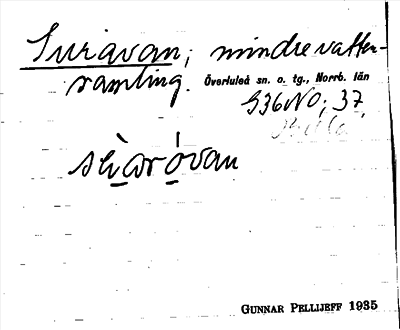 Suravan; mindre vatten-
samling. Överluleå sn. o. tg., Norrb. län
G36NO; 37
GUNNAR PELLIJEFF 1935